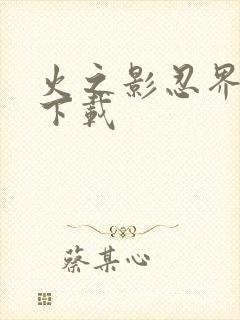 火之影忍界
下載
蔡某心